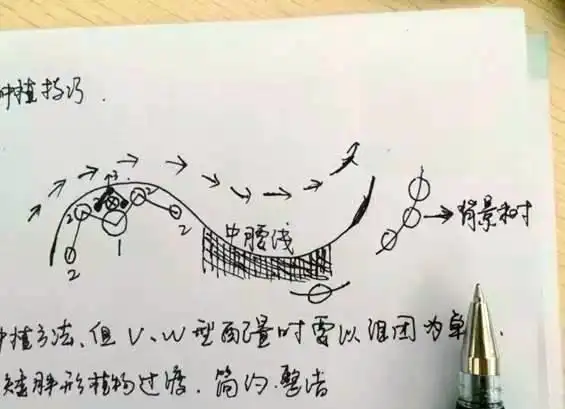 种植技巧.
3
2 2 2
中腰线
背景树
1
2 2
种植方法、但V、W型配置时需以组团为单
矮胖形植物过渡.简约.整洁